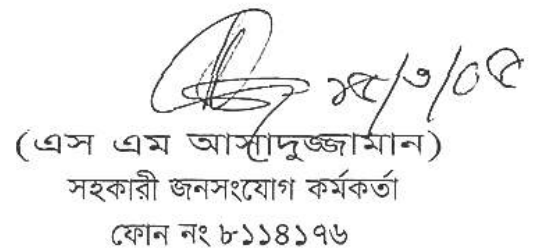 ১৫/৩/০৫
(এস এম আসাদুজ্জামান)
সহকারী জনসংযোগ কর্মকর্তা
ফোন নং ৮১১৪১৭৬